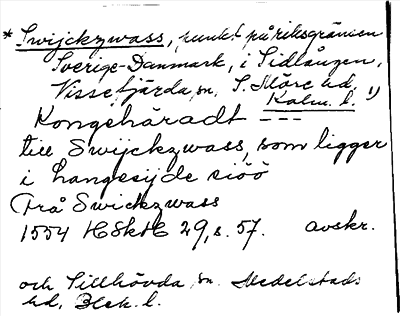 * Swijckzwass, punkt på riksgränsen
Sverige-Danmark, i Sidlången,
Vissefjärda sn, S. Möre hd,
Kalm. l. 1)
Kongehäradt ---
till Swijckzwass, som ligger
i hangesijde siöö
Frå Swickzwass
1554 HSkH 29, s. 57. avskr.
och Tillhövda sn. Medelstads
hd, Blek. l.